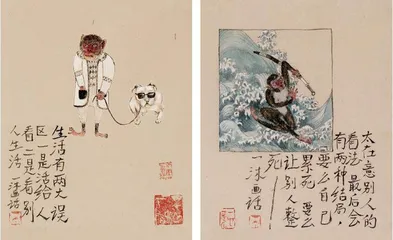 生活有两大误
区一是活给人
看二是看别
人生活
太在意别人的
看法最后会
有两种结局，
要么自己
累死，要么
让别人整
死
一沐画话